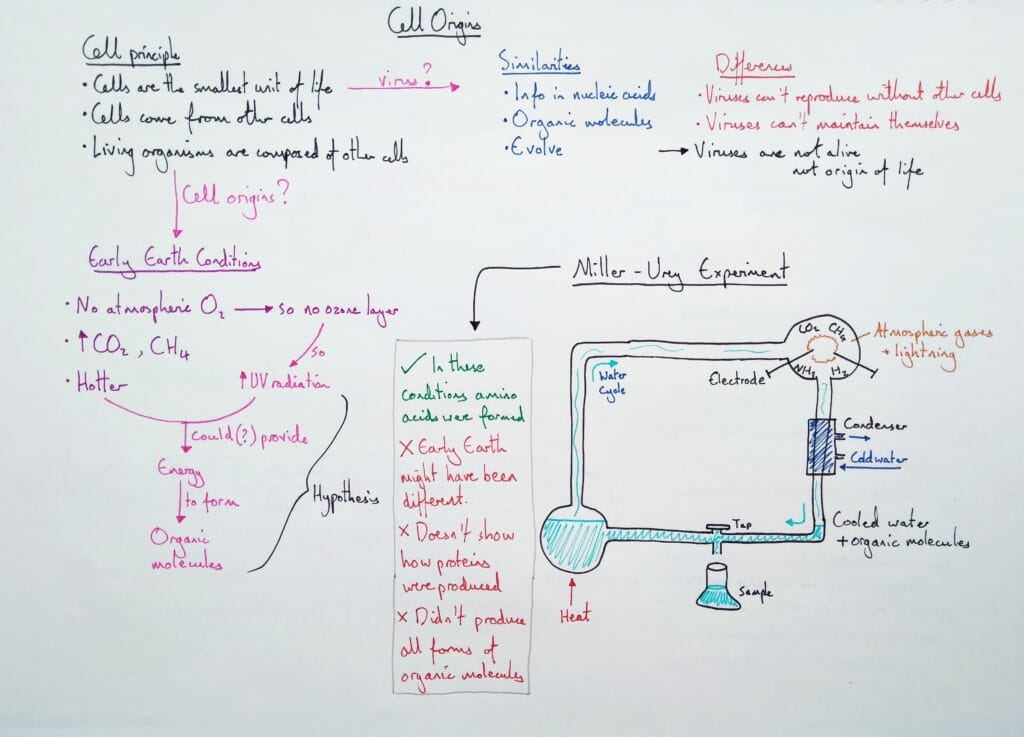 Cell Origins
Cell principle
• Cells are the smallest unit of life
• Cells come from other cells
• Living organisms are composed of other cells
virus?
Similarities
• Info in nucleic acids
• Organic molecules
• Evolve
Differences
• Viruses can't reproduce without other cells
• Viruses can't maintain themselves
→ Viruses are not alive
not origin of life
Cell origins?
Early Earth Conditions
• No atmospheric O₂ → so no ozone layer
• ↑CO₂, CH₄
so
• Hotter
↑UV radiation
could(?) provide
Energy
to form
Organic
molecules
Hypothesis
Miller-Urey Experiment
✓ In these
conditions amino
acids were formed
✗ Early Earth
might have been
different.
✗ Doesn't show
how proteins
were produced
✗ Didn't produce
all forms of
organic molecules
Water
Cycle
CO₂ CH₄
NH₃ H₂
Electrode
Atmospheric gases
+ lightning
Condenser
Cold water
Cooled water
+ organic molecules
Tap
Sample
Heat